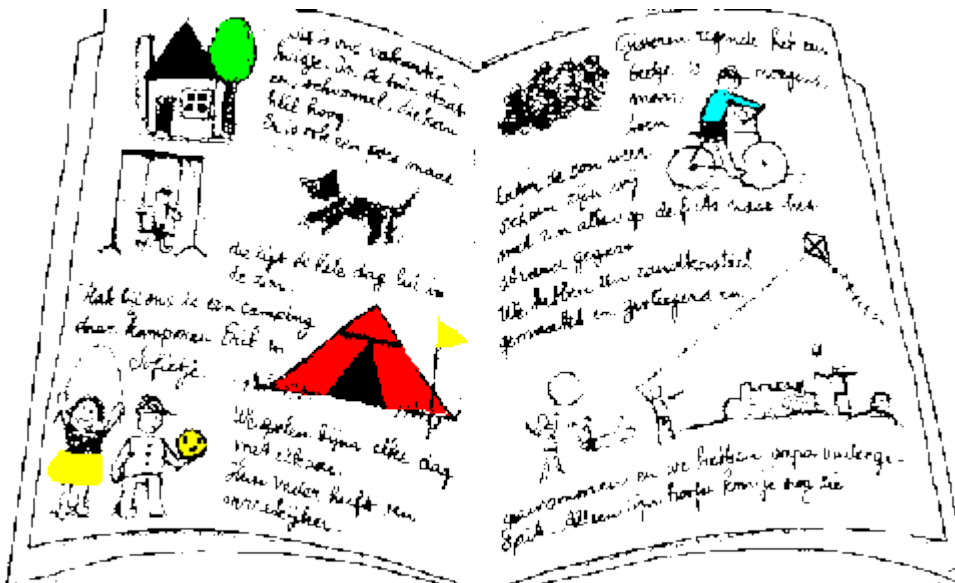 Dit is ons vakantie
huisje. In de tuin staat
en schommel. Die kan
heel hoog.
Er is ook een poes maar
die ligt de hele dag lui in
de zon.
Vlak bij ons is een camping
daar kamperen Erik en
Sofietje.
We spelen bijna elke dag
met elkaar.
Hun vader heeft een
verrekijker.
Gisteren regende het een
beetje 's morgens,
maar
toen
de zon weer
scheen zijn wij
met z'n allen op de fiets naar het
strand gegaan
We hebben een zandkasteel
gemaakt en gevliegerd en
gezwommen en we hebben papa
Alleen zijn hoofd kon je nog zie